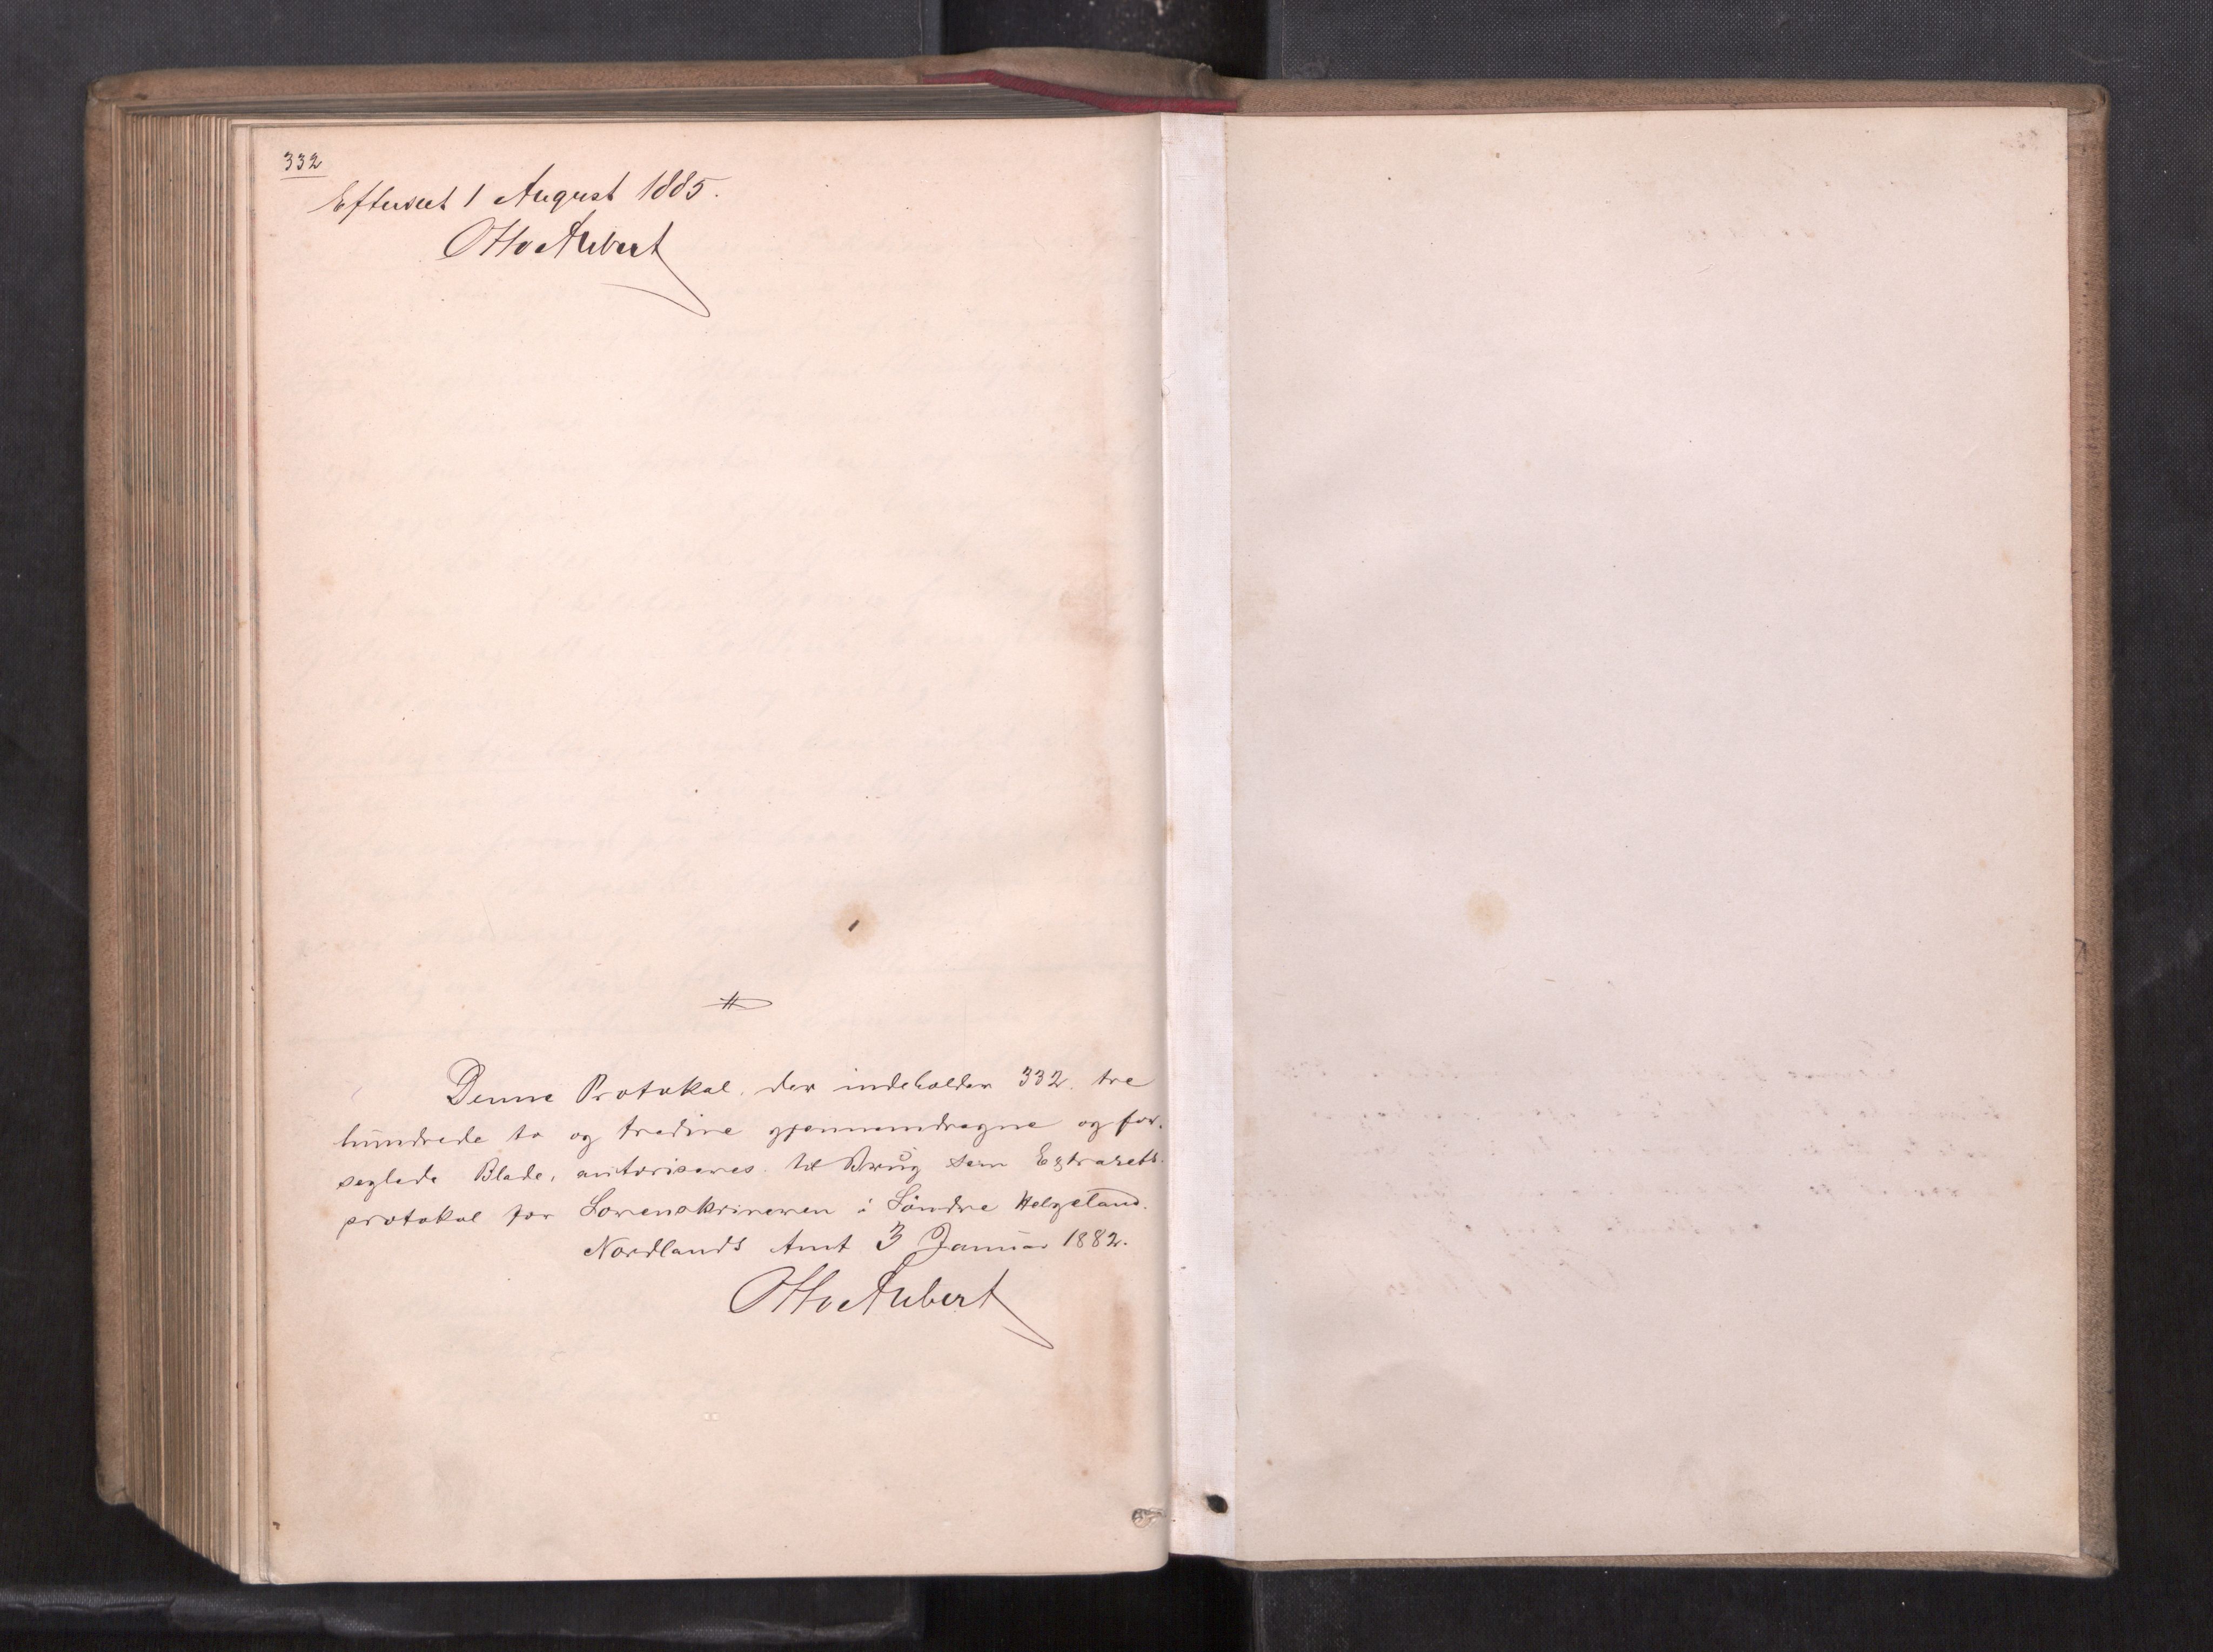 332
Efterseet 1 August 1885.
Otto Aubert
Denne Protokol, der indeholder 332, tre
hundrede to og tredive gjennemdragne og for-
seglede Blade, autoriseres til Brug som Extrarets-
protokol for Sorenskriveren i Søndre Helgeland.
Nordlands Amt 3 Januar 1882.
Otto Aubert